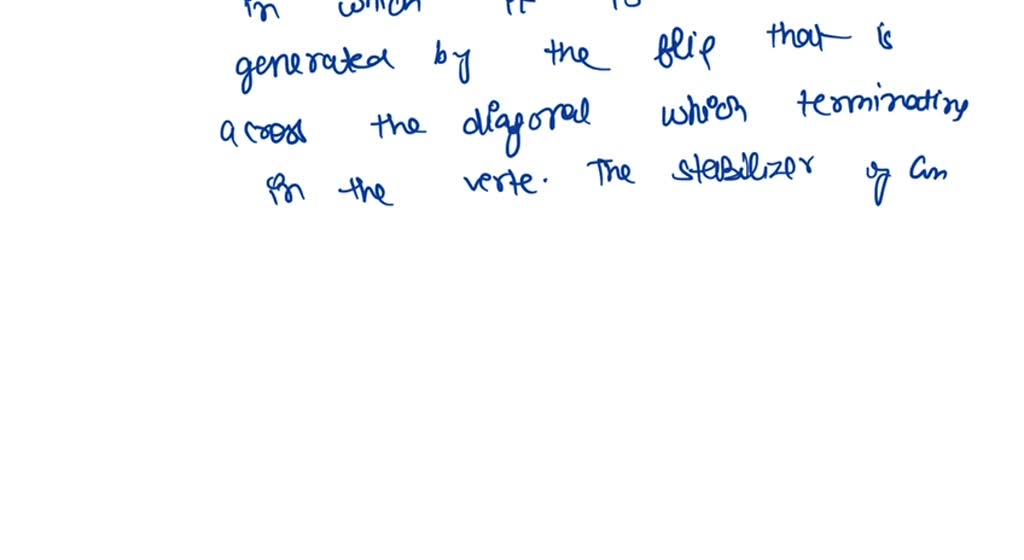 in which it is
generated by the flip that is
across the diagonal which terminating
in the verte. The stabilizer of an